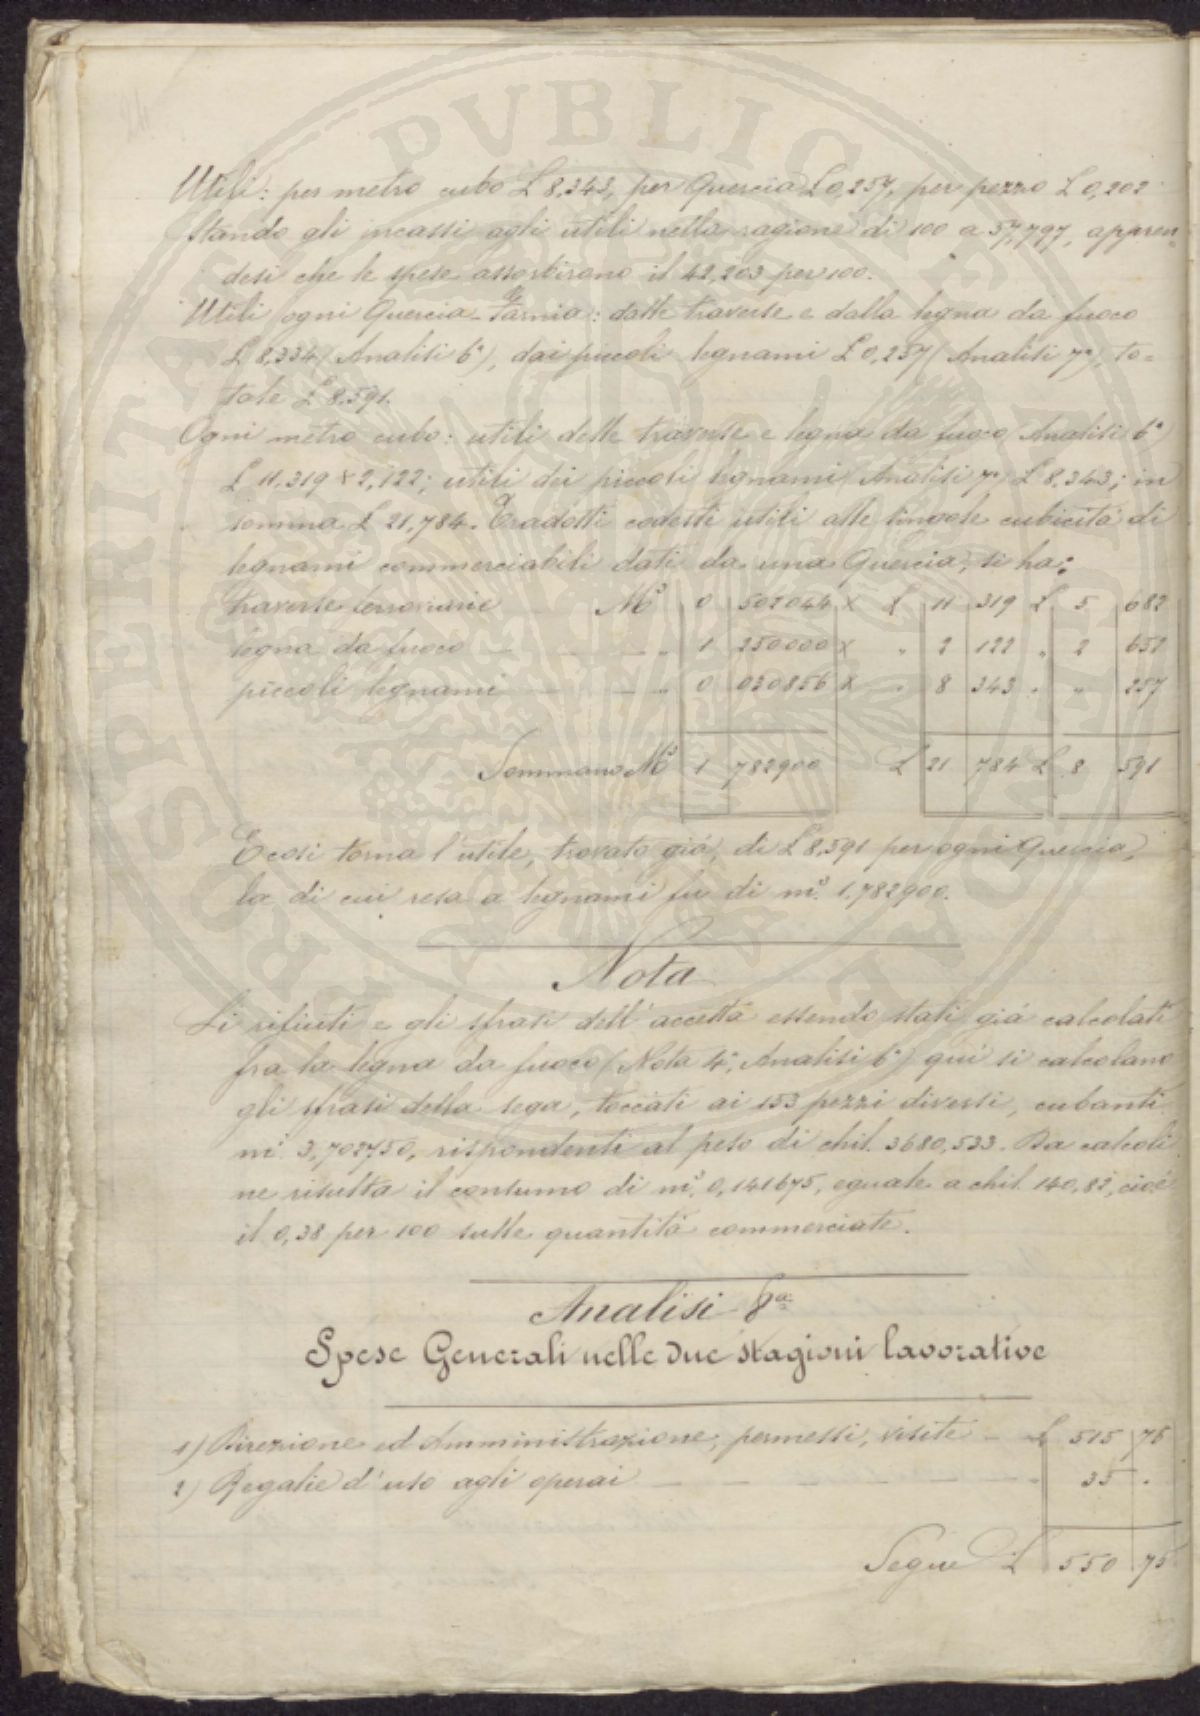 Utili: per metro cubo L 8,343, per Quercia L 0,257, per pezzo L 0,202
Stando gli incassi agli utili nella ragione di 100 a 57,797, appren=
desi che le spese assorbirono il 42,203 per 100.
Utili ogni Quercia-Farnia: dalle traverse e dalla legna da fuoco
L 8,334 (Analisi 6ª), dai piccoli legnami L 0,257 (Analisi 7ª), to=
tale L 8,591.
Ogni metro cubo: utili delle traverse e legna da fuoco (Analisi 6ª)
L 11,319 + 2,122; utili dei piccoli legnami (Analisi 7ª) L 8,343; in
somma L 21,784. Tradotti codesti utili alle singole cubicità di
legnami commerciabili dati da una Quercia, si ha:
traverse ferroviarie M³ 0 502044 X L 11 319 L 5 682
legna da fuoco " 1 250000 X " 2 122 " 2 652
piccoli legnami " 0 030856 X " 8 343 " " 257
Sommano M³ 1 782900 L 21 784 L 8 591
E così torna l'utile, trovato già, di L 8,591 per ogni Quercia,
la di cui resa a legnami fu di m³. 1,782900.
Nota
Li rifiuti e gli sfrasi dell'accetta essendo stati già calcolati
fra la legna da fuoco (Nota 4ª, Analisi 6ª) qui si calcolano
gli sfrasi della sega, toccati ai 153 pezzi diversi, cubanti
m³. 3,702750, rispondenti al peso di chil. 3680,533. Da calcoli
ne risulta il consumo di m³. 0,141675, eguale a chil. 140,83, cioè
il 0,38 per 100 sulle quantità commerciate.
Analisi 8ª
Spese Generali nelle due stagioni lavorative
1) Direzione ed Amministrazione, permessi, visite L 515 75
2) Regalie d'uso agli operai " 35 "
Segue L 550 75
PROSPERITATI PUBLICAE AUGENDAE